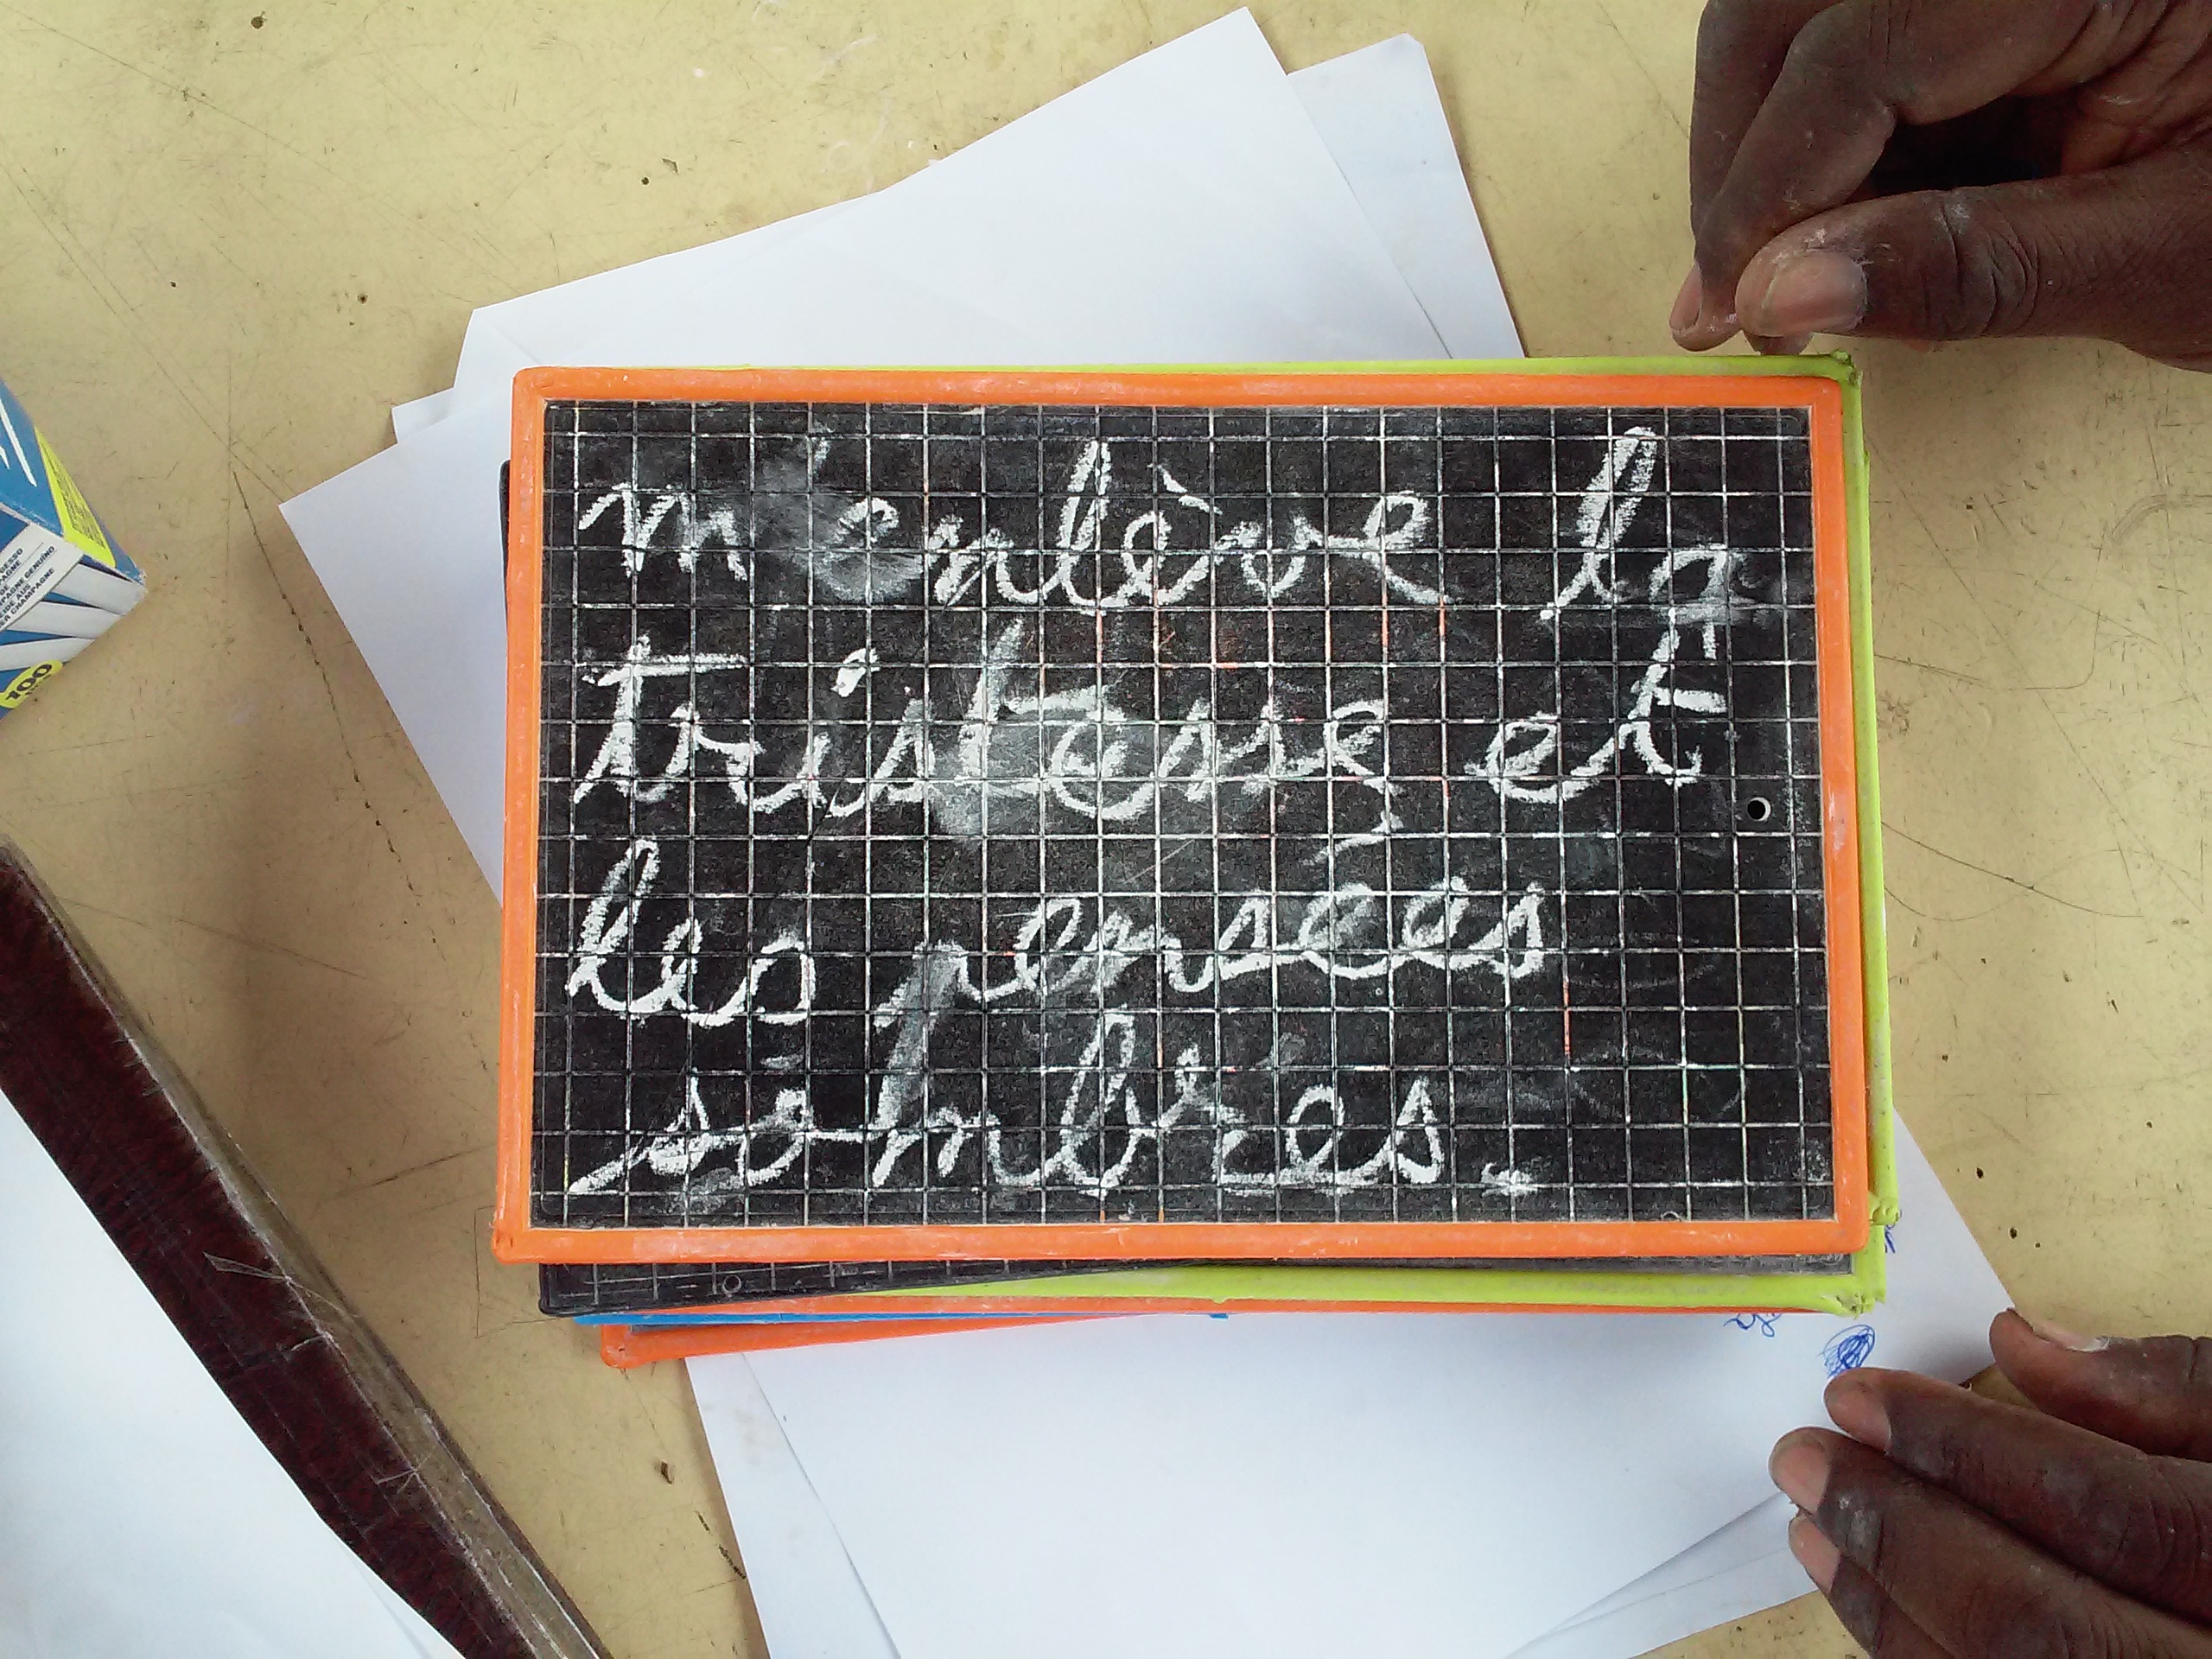 m'enlève la
tristesse et
les pensées
sombres.
100